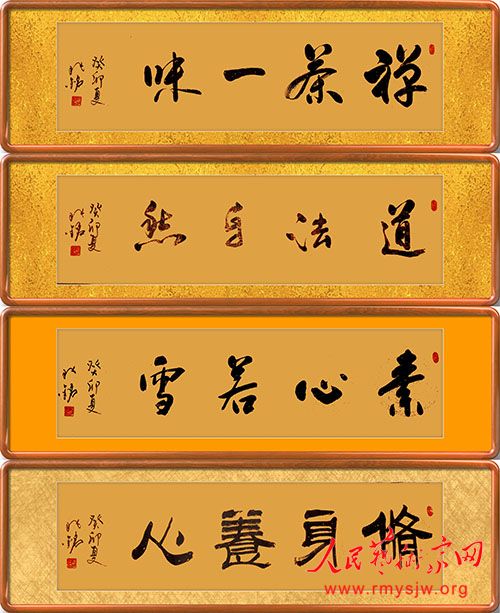 禅茶一味
癸卯夏
道法自然
癸卯夏
素心若雪
癸卯夏
脩身養心
癸卯夏
人民藝術家网
www.rmysjw.org